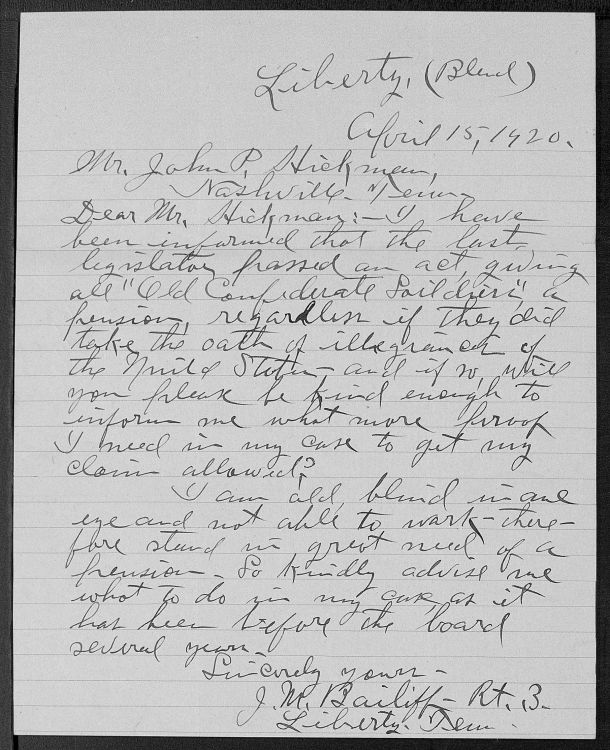 Liberty, (Blend)
April 15, 1920.
Mr. John P. Hickman,
Nashville - Tenn -
Dear Mr. Hickman: - I have
been informed that the last
legislatoy passed an act, giving
all "Old Confederate Soildiers", a
pension, regardless if they did
take the oath of illegrances of
the Unite States - and if so, will
you please be kind enough to
inform me what more proof
I need in my case to get my
claim allowed?
I am old, blind in one
eye and not able to work - there -
fore stand in great need of a
pension - So kindly advise me
what to do in my case, as it
has been before the board
several years -
Sincerely yours -
J. M. Bailiff - Rt. 3.
Liberty, Tenn.